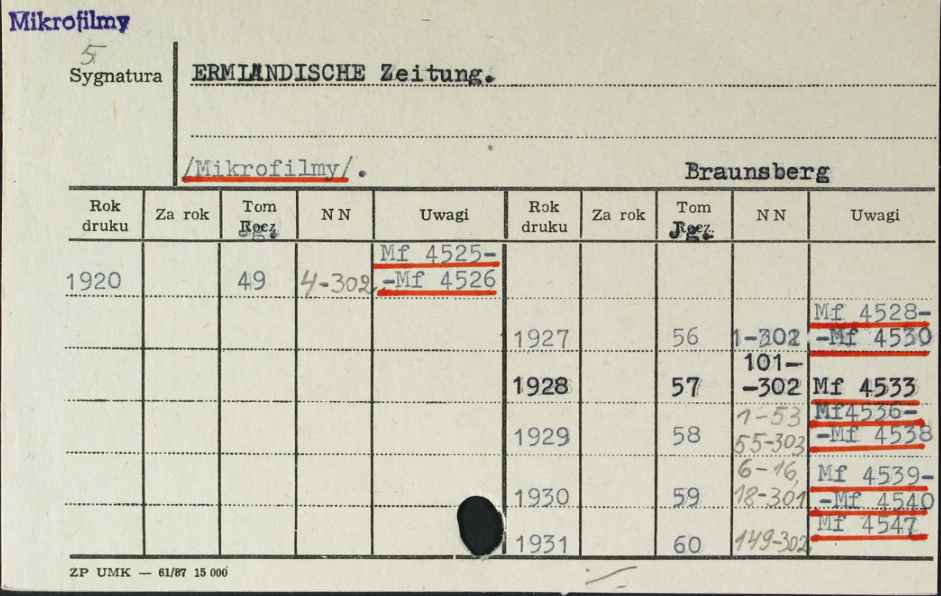 Mikrofilmy
5
Sygnatura ERMLÄNDISCHE Zeitung.
/Mikrofilmy/. Braunsberg
Rok druku Za rok Tom Jg. NN Uwagi Rok druku Za rok Tom Jg. NN Uwagi
Mf 4525-
1920 49 4-302 -Mf 4526
Mf 4528-
1927 56 1-302 -Mf 4530
101-
1928 57 -302 Mf 4533
1-53 Mf4536-
1929 58 55-303 -Mf 4538
6-16, Mf 4539-
1930 59 18-301 -Mf 4540
Mf 4547
1931 60 149-302
ZP UMK — 61/87 15 000